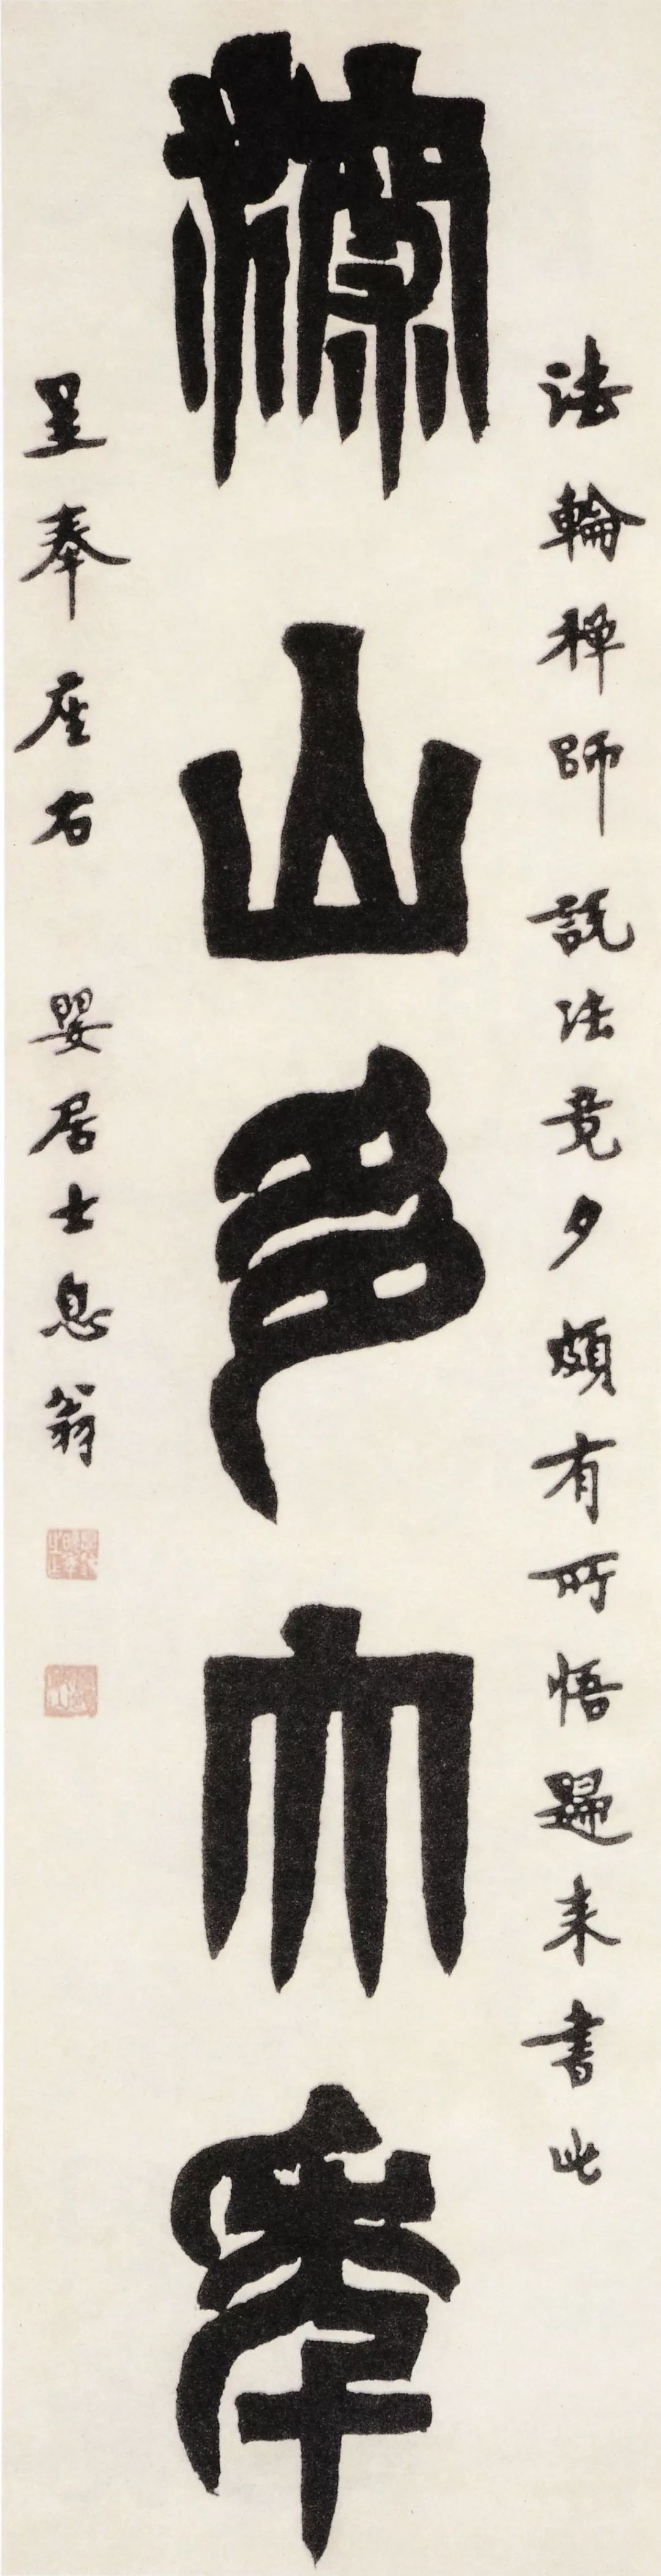 深山多大年
法輪禪師説法竟夕頗有所悟歸来書此
呈奉座右 嬰居士息翁